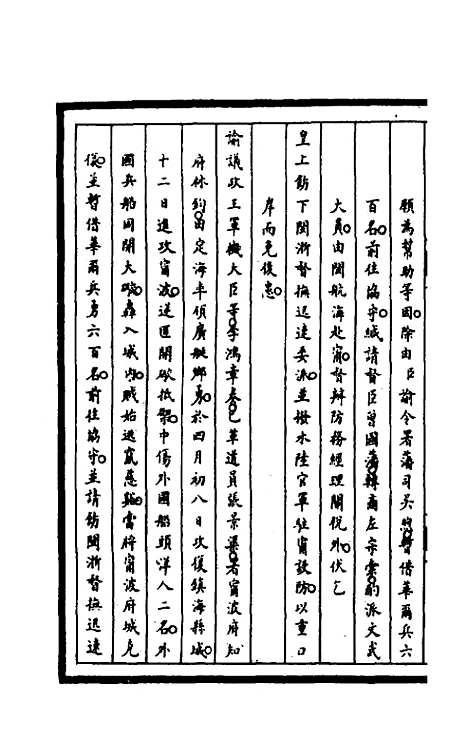 願為幫助等因除由臣諭令署藩司吳煦暫借華爾兵六
百名前往協守緘請督臣曾國藩轉商左宗棠酌派文武
大員由閩航海赴甯督辦防務經理關稅外伏乞
皇上飭下閩浙督撫迅速委派並撥水陸官軍駐甯設防以重口
岸而免後患
諭議政王軍機大臣等李鴻章奏已革道員張景渠署甯波府知
府林鈞由定海率領廣艇鄉勇於四月初八日攻復鎮海縣城
十二日進攻甯波逆匪開礮抵禦中傷外國船頭洋人二名外
國兵船同開大礮轟入城內賊始逃竄慈谿當將甯波府城克
復並暫借華爾兵勇六百名前往協守並請飭閩浙督撫迅速